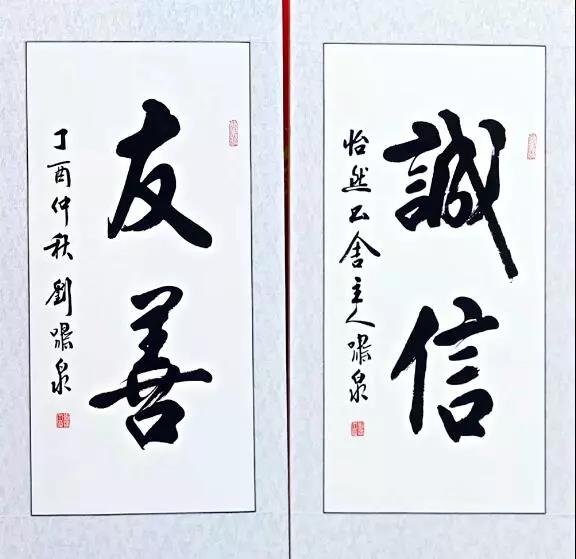 誠信
怡然不舍主人啸泉
友善
丁酉仲秋劉啸泉